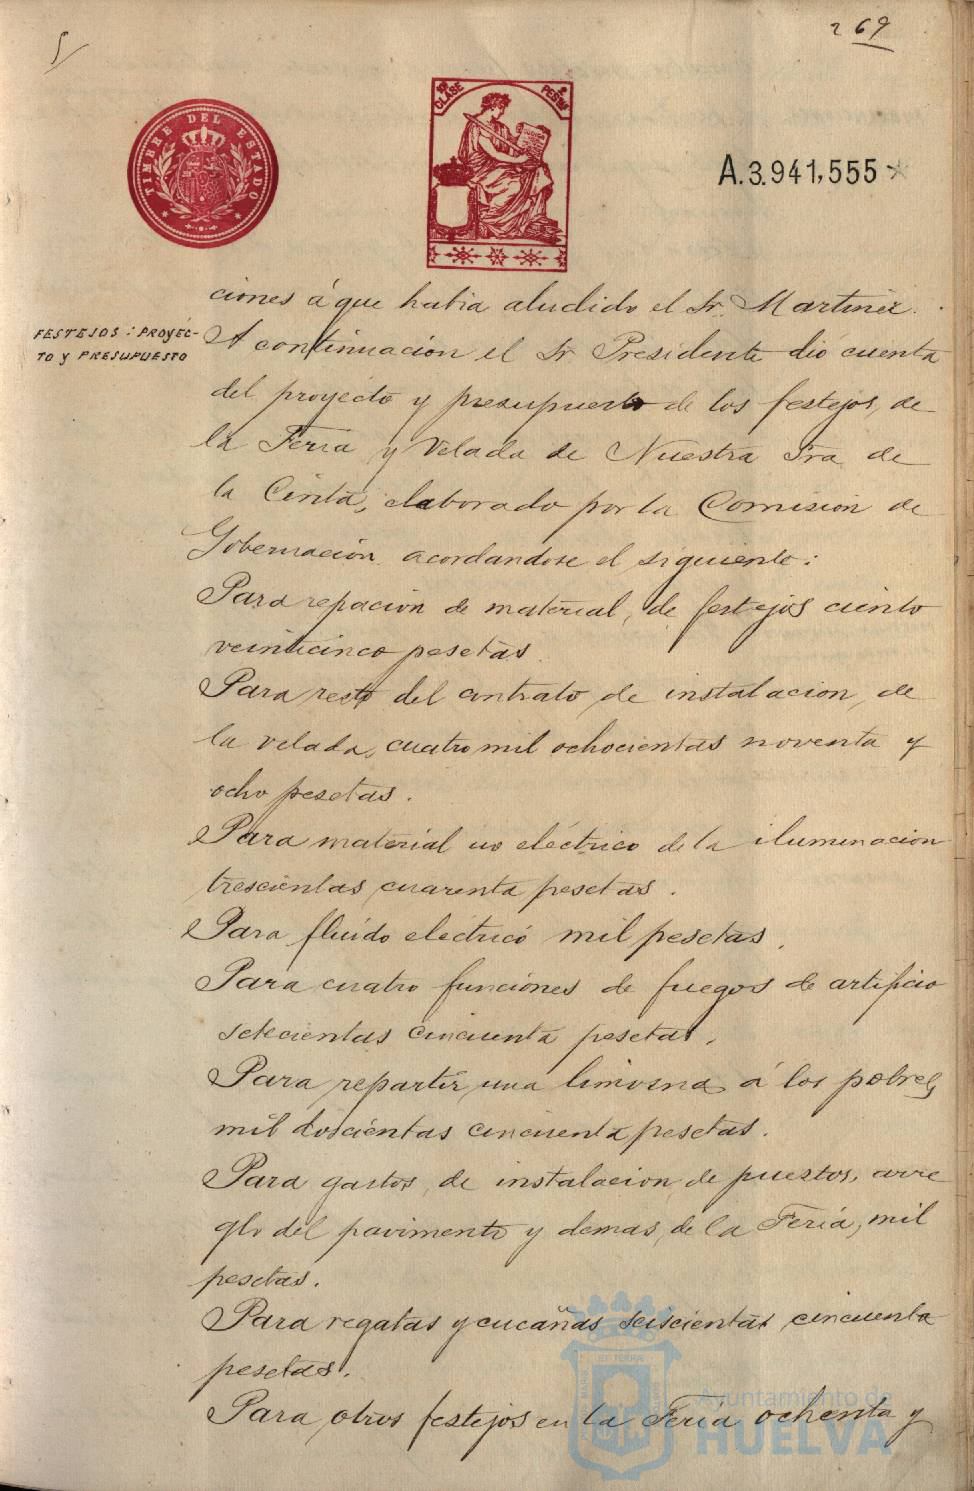 269
5/
TIMBRE DEL ESTADO
10ª CLASE
2 PESTAS
A.3.941,555
FESTEJOS: PROYEC-
TO Y PRESUPUESTO
ciones á que habia aludido el Sr. Martinez.
A continuación el Sr. Presidente dió cuenta
del proyecto y presupuesto de los festejos, de
la Feria y Velada de Nuestra Sra. de
la Cinta, elaborado por la Comisión de
Gobernación acordandose el siguiente:
Para repacion de material, de festejos ciento
veinticinco pesetas
Para resto del contrato de instalacion, de
la velada, cuatro mil ochocientas noventa y
ocho pesetas.
Para material no eléctrico de la iluminacion
trescientas cuarenta pesetas.
Para fluido electrico mil pesetas.
Para cuatro funciones de fuegos de artificio
setecientas cincuenta pesetas.
Para repartir una limosna á los pobres,
mil doscientas cincuenta pesetas.
Para gastos, de instalacion, de puestos, arre
glo del pavimento y demas, de la Feria, mil
pesetas.
Para regatas y cucañas seiscientas cincuenta
pesetas.
Para otros festejos en la Feria ochenta y
Ayuntamiento de
HUELVA